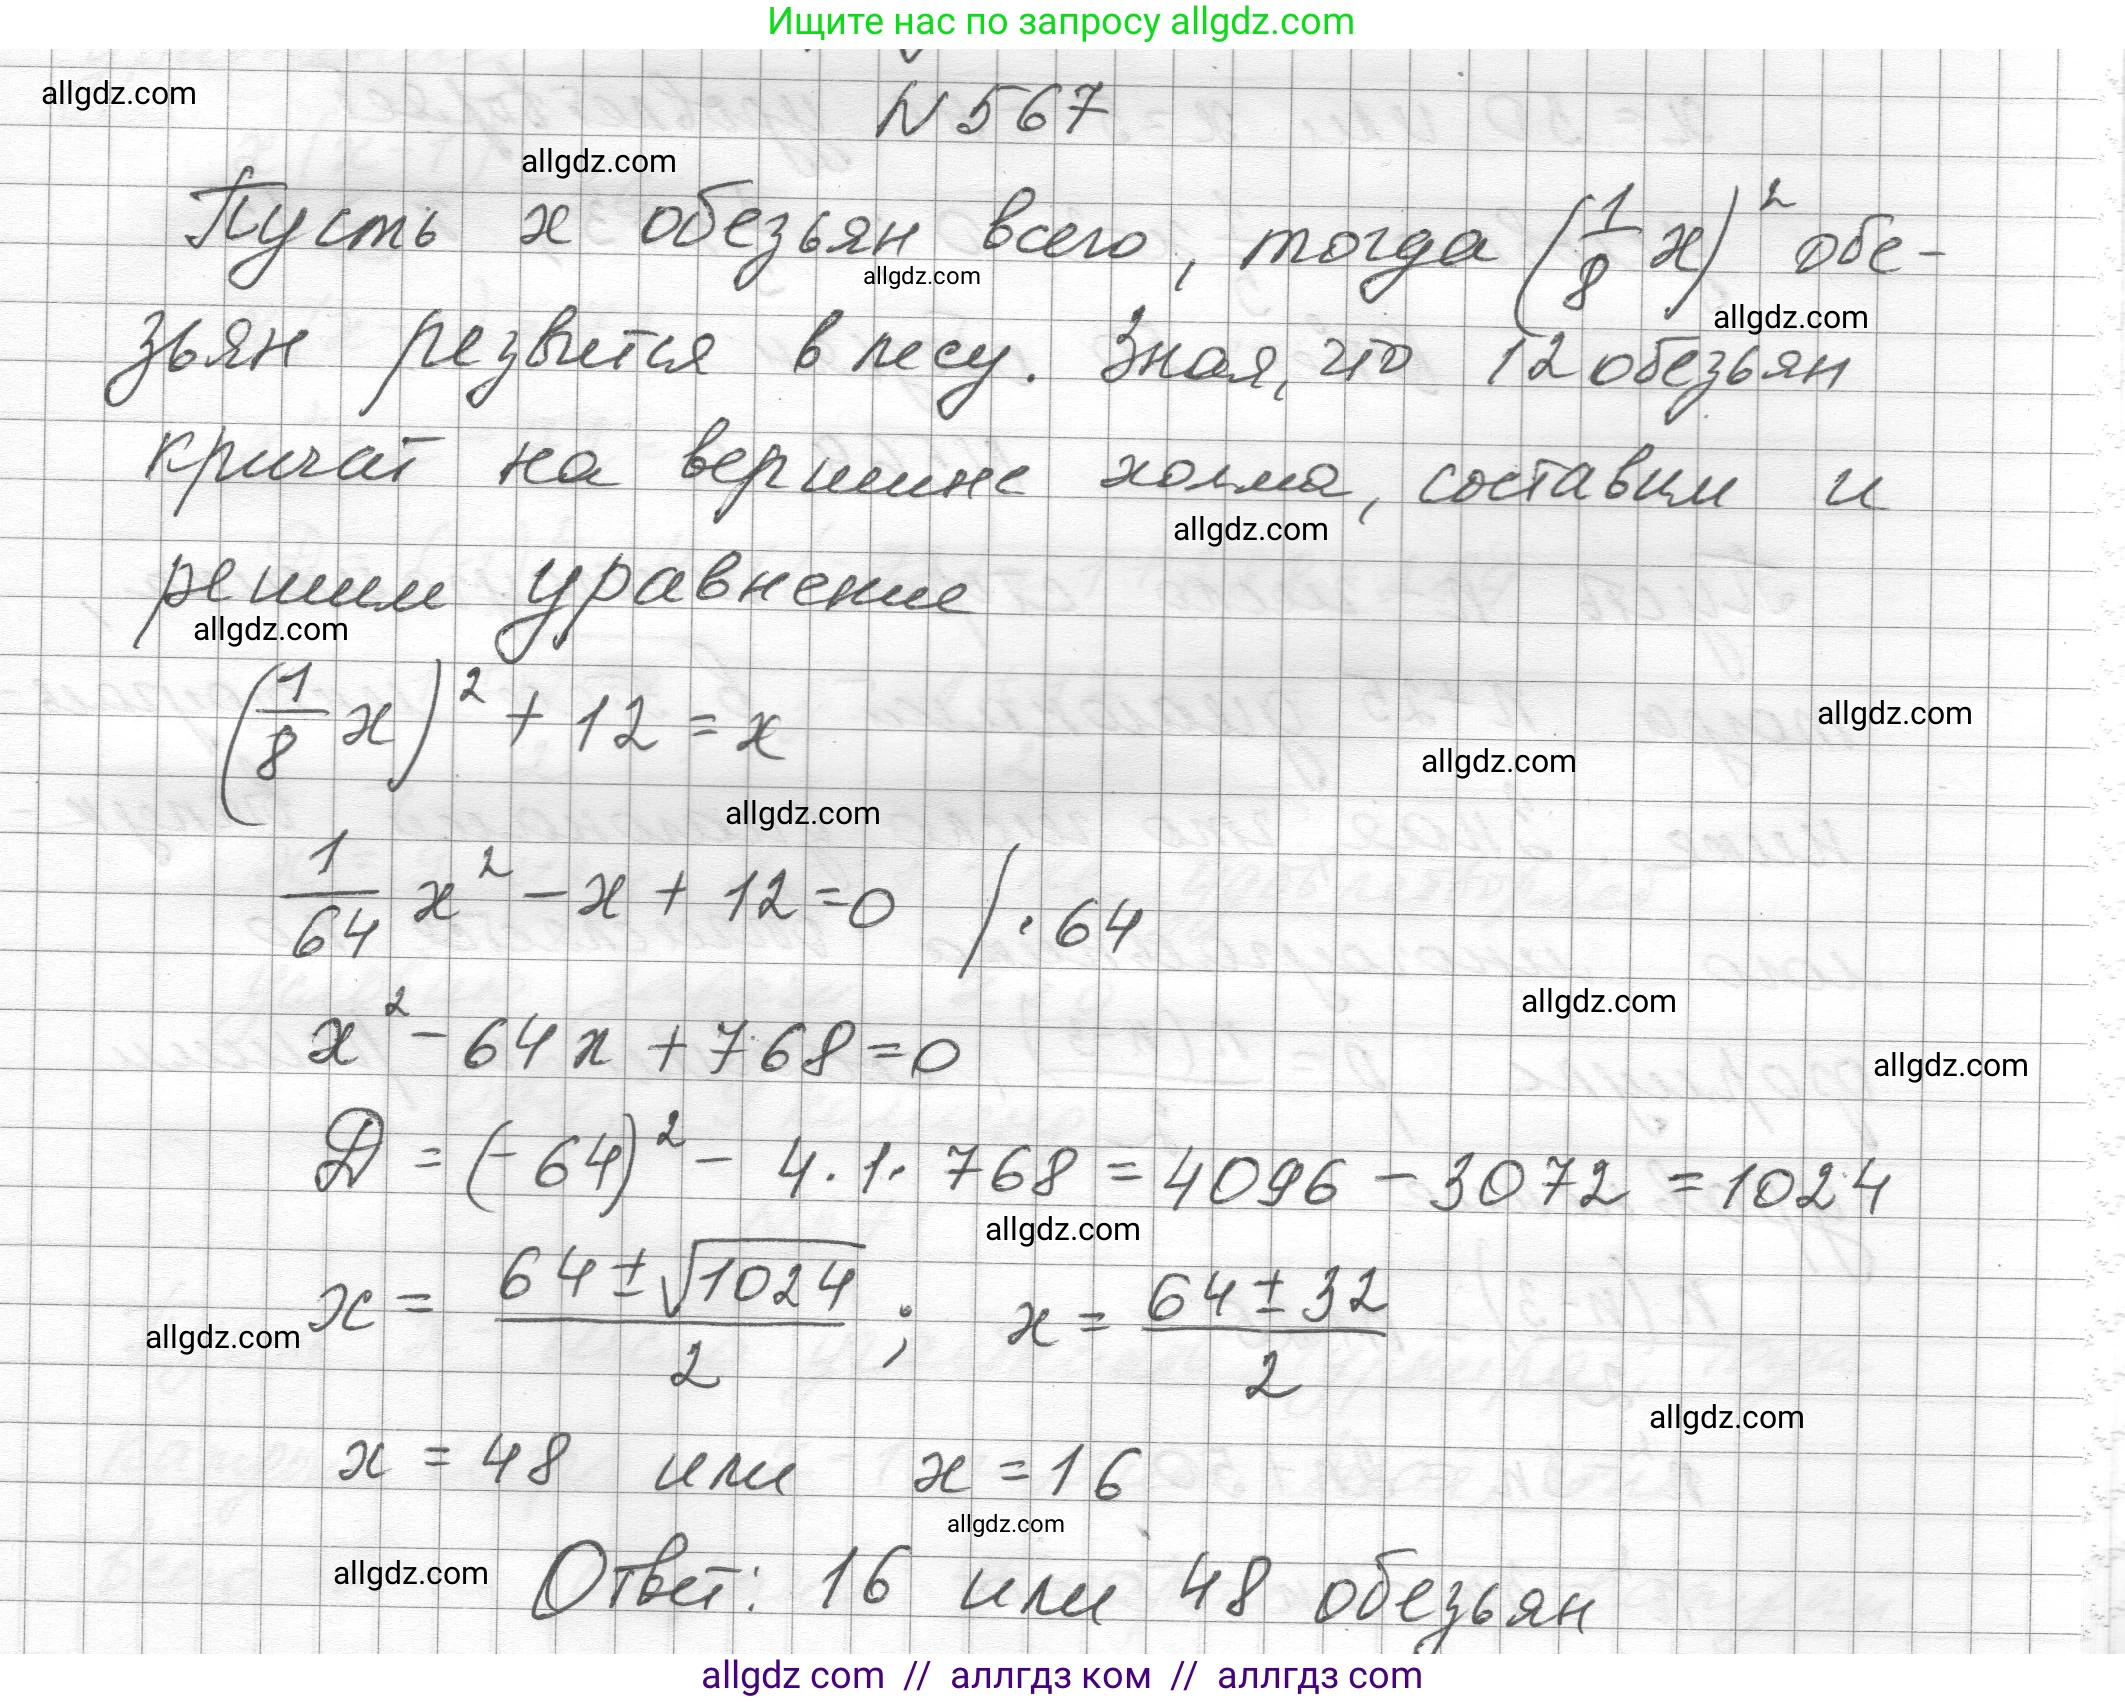 Ищите нас по запросу allgdz.com
allgdz.com
N 567
allgdz.com
Пусть x обезьян всего, тогда (1/8 x)² обе-
allgdz.com
allgdz.com
зьян резвится в лесу. Зная, что 12 обезьян
кричат на вершине холма, составим и
allgdz.com
решим уравнение
allgdz.com
(1/8 x)² + 12 = x
allgdz.com
allgdz.com
allgdz.com
1/64 x² - x + 12 = 0 / · 64
allgdz.com
x² - 64x + 768 = 0
allgdz.com
D = (-64)² - 4 · 1 · 768 = 4096 - 3072 = 1024
allgdz.com
x = (64 ± √1024)/2 ; x = (64 ± 32)/2
allgdz.com
allgdz.com
x = 48 или x = 16
allgdz.com
allgdz.com
Ответ: 16 или 48 обезьян
allgdz com // аллгдз ком // аллгдз com